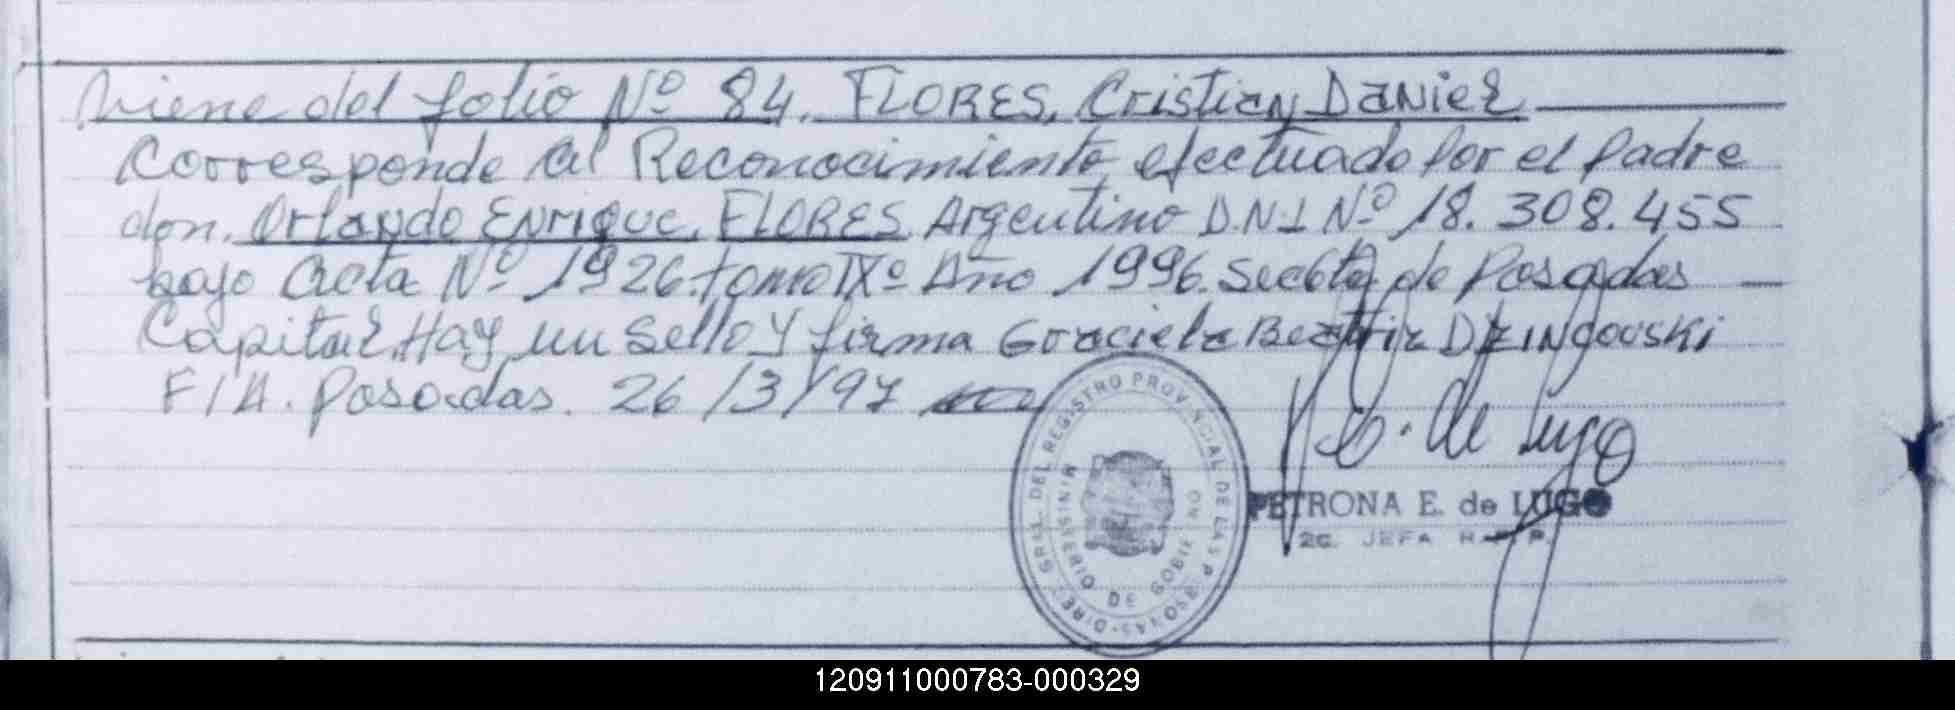 Viene del folio Nº 84. FLORES, Cristian Daniel
Corresponde al Reconocimiento efectuado por el Padre
don. Orlando Enrique, FLORES Argentino D.N.I Nº 18.308.455
bajo Acta Nº 1926. tomo IXº Año 1996. Secc6ta de Posadas
Capital. Hay un Sello y firma Graciela Beatriz DZINGOUSKI
F/A. Posadas. 26/3/97
DIREC. GRAL. DEL REGISTRO PROVINCIAL DE LAS PERSONAS
MINISTERIO DE GOBIERNO
P. E. de Lugo
PETRONA E. de LUGO
2a. JEFA R. P.
120911000783-000329